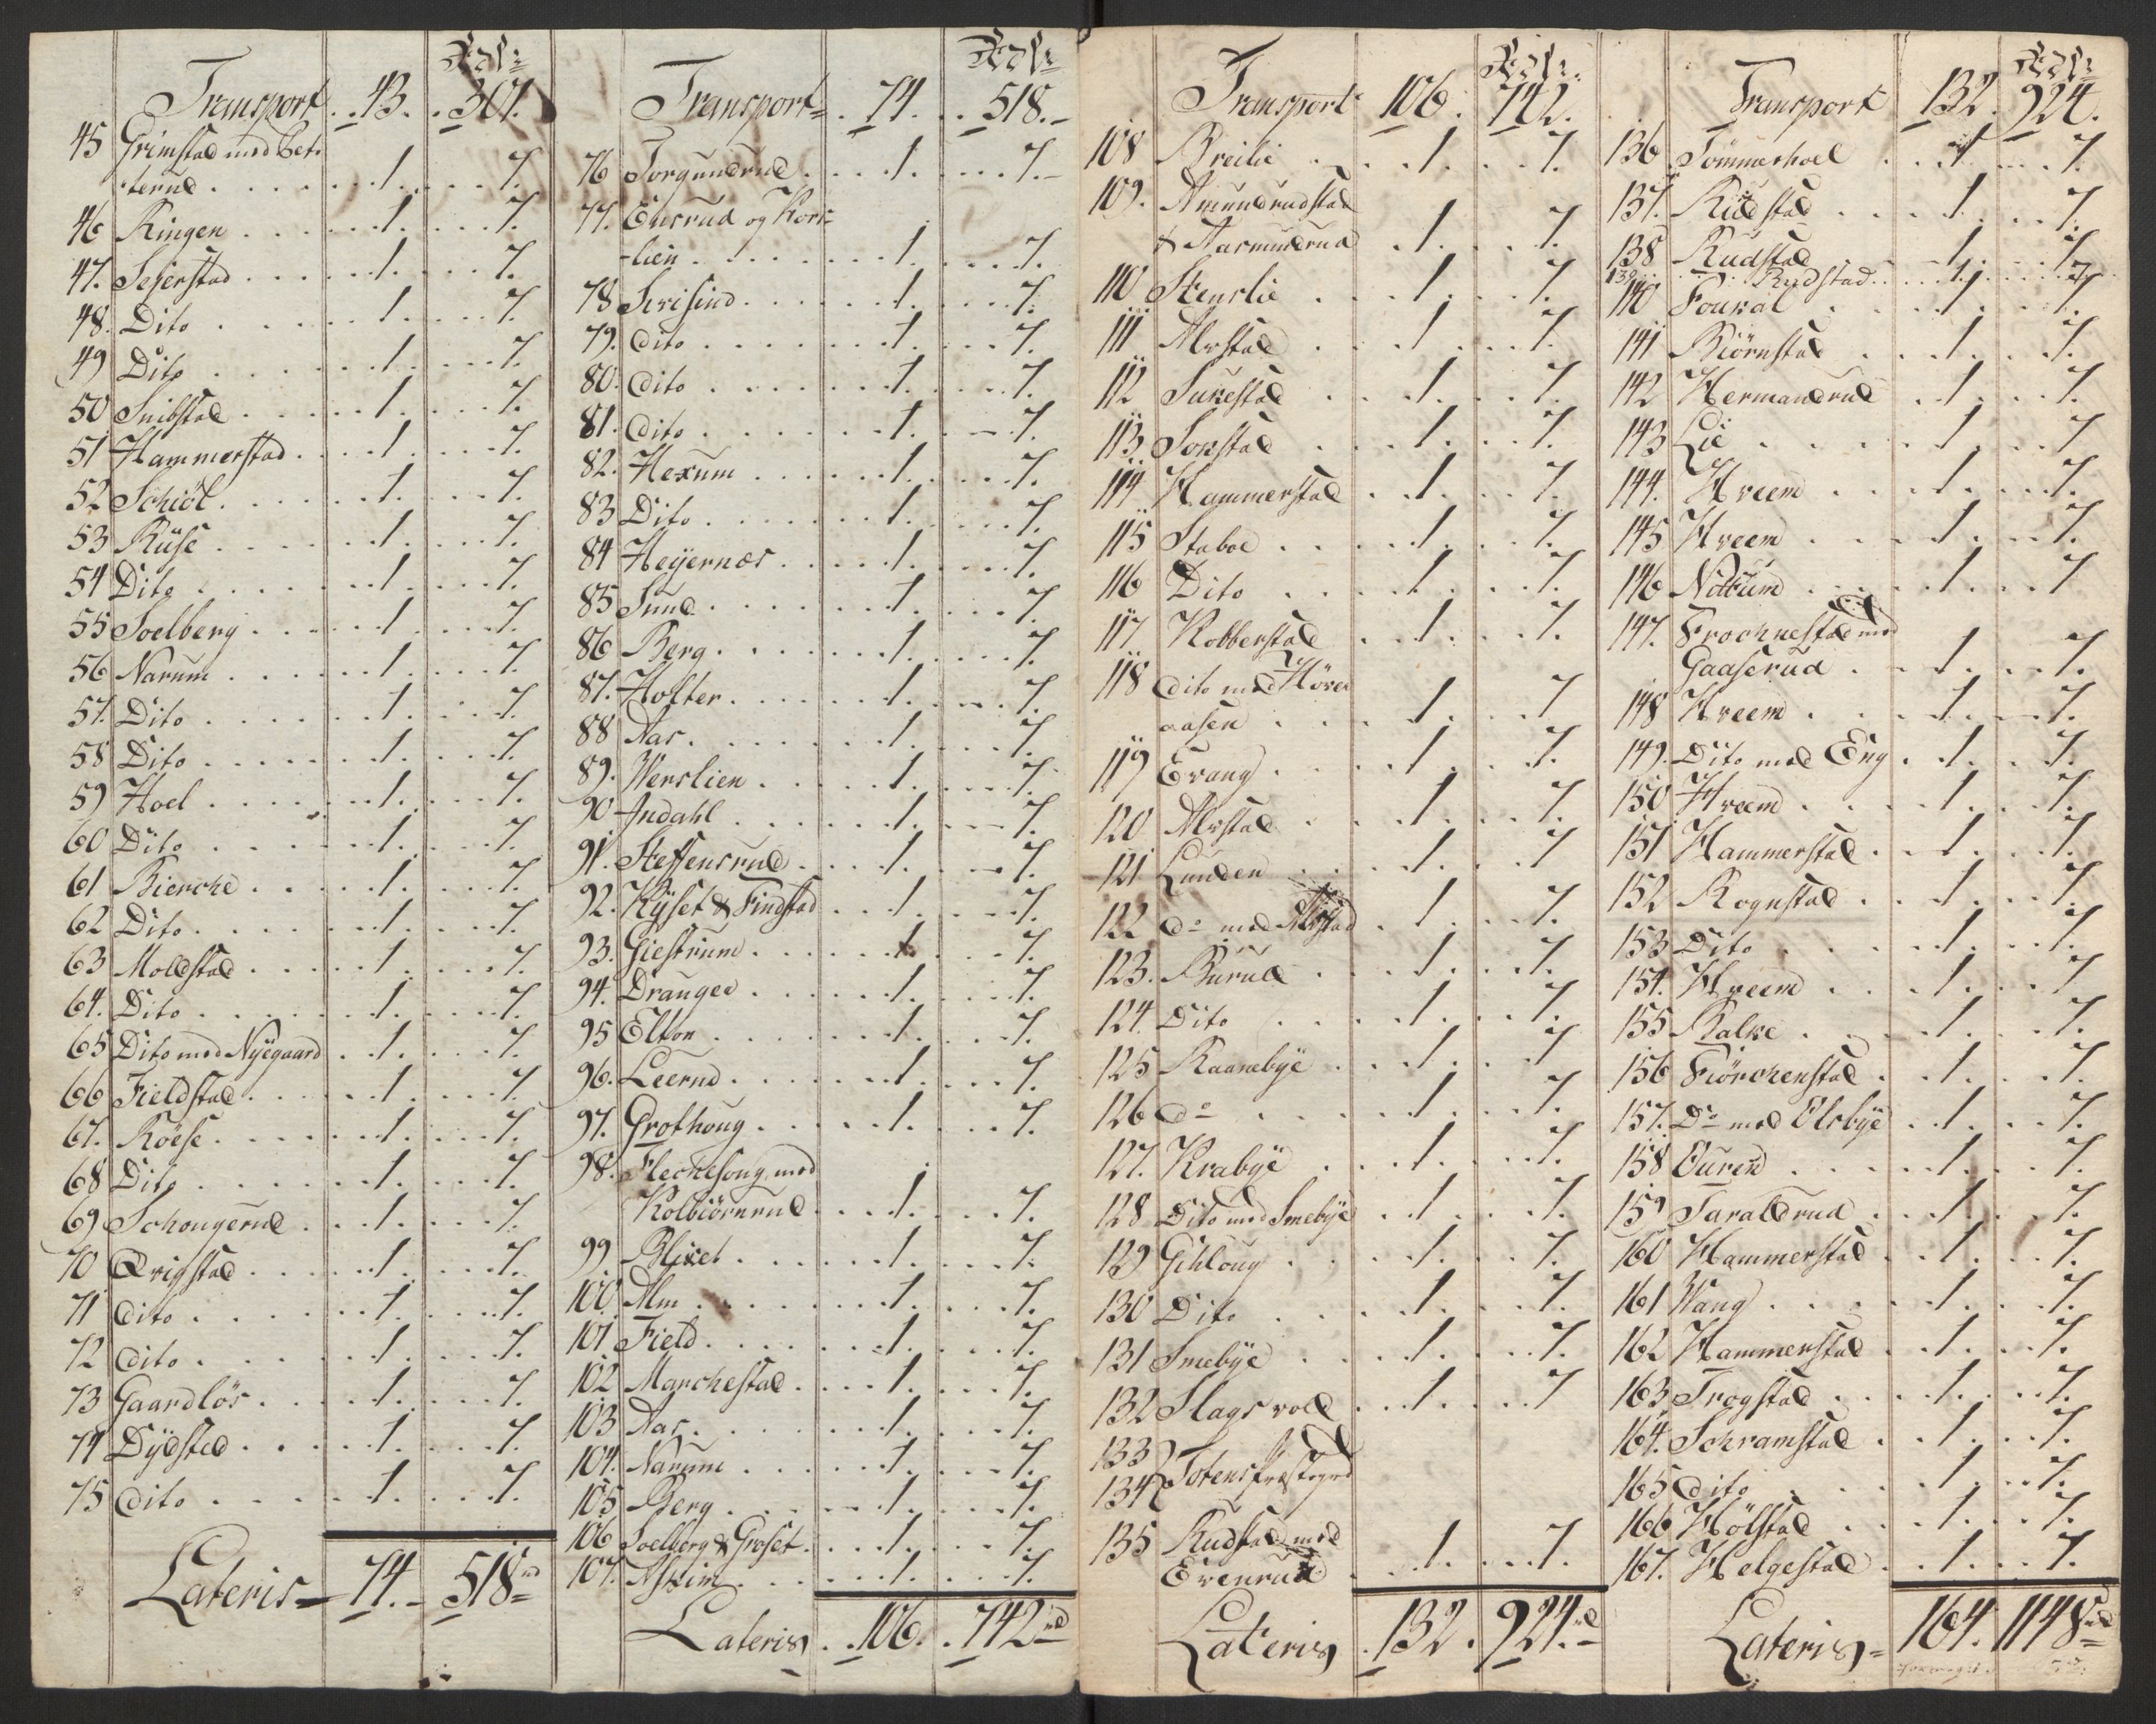 Transport . 43. . 301.
45 Grimstad med Bet-
terud . . . 1. . . 7.
46 Ringen . . . 1. . . 7.
47. Sejerstad . . . 1. . . 7.
48. Dito . . . 1. . . 7.
49 Dito . . . 1. . . 7.
50 Snibstad . . . 1. . . 7.
51 Hammerstad . . . 1. . . 7.
52 Schiöl . . . 1. . . 7.
53 Rüse . . . 1. . . 7.
54 Dito . . . 1. . . 7.
55 Soelberg . . . 1. . . 7.
56 Narum . . . 1. . . 7.
57. Dito . . . 1. . . 7.
58 Dito . . . 1. . . 7.
59 Hoel . . . 1. . . 7.
60 Dito . . . 1. . . 7.
61 Biercke . . . 1. . . 7.
62 Dito . . . 1. . . 7.
63 Moldstad . . . 1. . . 7.
64. Dito . . . 1. . . 7.
65 Dito med Nyegaard . 1. . . 7.
66 Fieldstad . . . 1. . . 7.
67. Röese . . . 1. . . 7.
68 Dito . . . 1. . . 7.
69 Schougerud . . . 1. . . 7.
70 Qvigstad . . . 1. . . 7.
71 dito . . . 1. . . 7.
72 dito . . . 1. . . 7.
73 Gaardlös . . . 1. . . 7.
74 Dÿdsted . . . 1. . . 7.
75 dito . . . 1. . . 7.
Lateris 74. 518 rd
Transport . 74. . 518.
76 Torgundrud . . . 1. . . 7.
77. Ensrud og Kork-
lien . . . 1. . . 7.
78 Sivisind . . . 1. . . 7.
79. dito . . . 1. . . 7.
80. dito . . . 1. . . 7.
81. dito . . . 1. . . 7.
82. Hexum . . . 1. . . 7.
83 Dito . . . 1. . . 7.
84 Heÿernæs . . . 1. . . 7.
85 Sund . . . 1. . . 7.
86 Berg . . . 1. . . 7.
87. Hofter . . . 1. . . 7.
88 Aas . . . 1. . . 7.
89. Werslien . . . 1. . . 7.
90 Indahl . . . 1. . . 7.
91. Steffensrud . . . 1. . . 7.
92. Rÿset & Findstad . . 1. . . 7.
93. Giestrum . . . 1. . . 7.
94. Drauger . . . 1. . . 7.
95 Elton . . . 1. . . 7.
96. Leerud . . . 1. . . 7.
97. Grothoug . . . 1. . . 7.
98. Fleckesoug med
Kolbiörnrud . . . 1. . . 7.
99 Blixet . . . 1. . . 7.
100 Alm . . . 1. . . 7.
101 Field . . . 1. . . 7.
102 Marchestad . . . 1. . . 7.
103 Aas . . . 1. . . 7.
104. Narum . . . 1. . . 7.
105 Berg . . . 1. . . 7.
106 Soelberg & Groset . . 1. . . 7.
107. Askim . . . 1. . . 7.
Lateris . 106. . 742 rd
Transport 106. 742.
108 Breilie . . . 1. . . 7.
109. Amundrudstad
& Aasmundrud . 1. . . 7.
110 Stenslie . . . 1. . . 7.
111 Alvstad . . . 1. . . 7.
112 Sukestad . . . 1. . . 7.
113 Sokstad . . . 1. . . 7.
114 Hammerstad . 1. . . 7.
115 Staboe . . . 1. . . 7.
116 Dito . . . 1. . . 7.
117. Kobberstad . . 1. . . 7.
118 dito med Höver
aasen . . . 1. . . 7
119 Evang . . . 1. . . 7.
120 Alvstad . . . 1. . . 7.
121 Lunden . . . 1. . . 7
122 do med Alvstad . 1. . . 7.
123. Burud . . . 1. . . 7.
124. Dito . . . 1. . . 7.
125 Kaanebÿe . . . 1. . . 7
126 do . . . 1. . . 7.
127. Krabÿe . . . 1. . . 7.
128 Dito med Smebÿe . 1. . . 7.
129 Gihloug . . . 1. . . 7.
130 Dito . . . 1. . . 7.
131 Smebÿe . . . 1. . . 7.
132 Slagsvold . . . 1. . . 7
133
134 Totens Præstegrd
135 Rudstad med
Evenrud . . 1. . . 7.
Lateris . 132. 924. rd
Transport 132. 924.
136 Tömmerhoel . . 1 . . 7.
137. Rudstad . . . 1. . . 7.
138 Rudstad . . . 1. . . 7
139 Rudstad . . . 1. . . 7
140 Foukal . . . 1. . . 7.
141 Biörnstad . . . 1. . . 7.
142 Hermandrud . . 1. . . 7.
143 Lie . . . 1. . . 7.
144. Hveem . . . 1. . . 7.
145 Hveem . . . 1. . . 7.
146 Nöckum . . . 1. . . 7
147. Frochnestad med
Gaaserud . . . 1. . . 7.
148 Hveem . . . 1. . . 7.
149. Dito med Eng . 1. . . 7.
150 Hveem . . . 1. . . 7.
151 Hammerstad . 1. . . 7.
152 Rognstad . . . 1. . . 7.
153 Dito . . . 1. . . 7.
154. Hveem . . . 1. . . 7
155 Balke . . . 1. . . 7.
156 Fiörckenstad . 1. . . 7.
157. Do med Elsbÿe . 1. . . 7.
158 Ouren . . . 1. . . 7.
159 Taraldrud . . 1. . . 7.
160 Hammerstad . 1. . . 7.
161 Wang . . . 1. . . 7.
162 Hammerstad . 1. . . 7.
163 Trogstad . . . 1. . . 7.
164. Schramstad . 1. . . 7.
165 dito . . . 1. . . 7.
166 Hölstad . . . 1. . . 7.
167. Helgestad . . 1. . . 7.
Lateris 164. 1148 rd